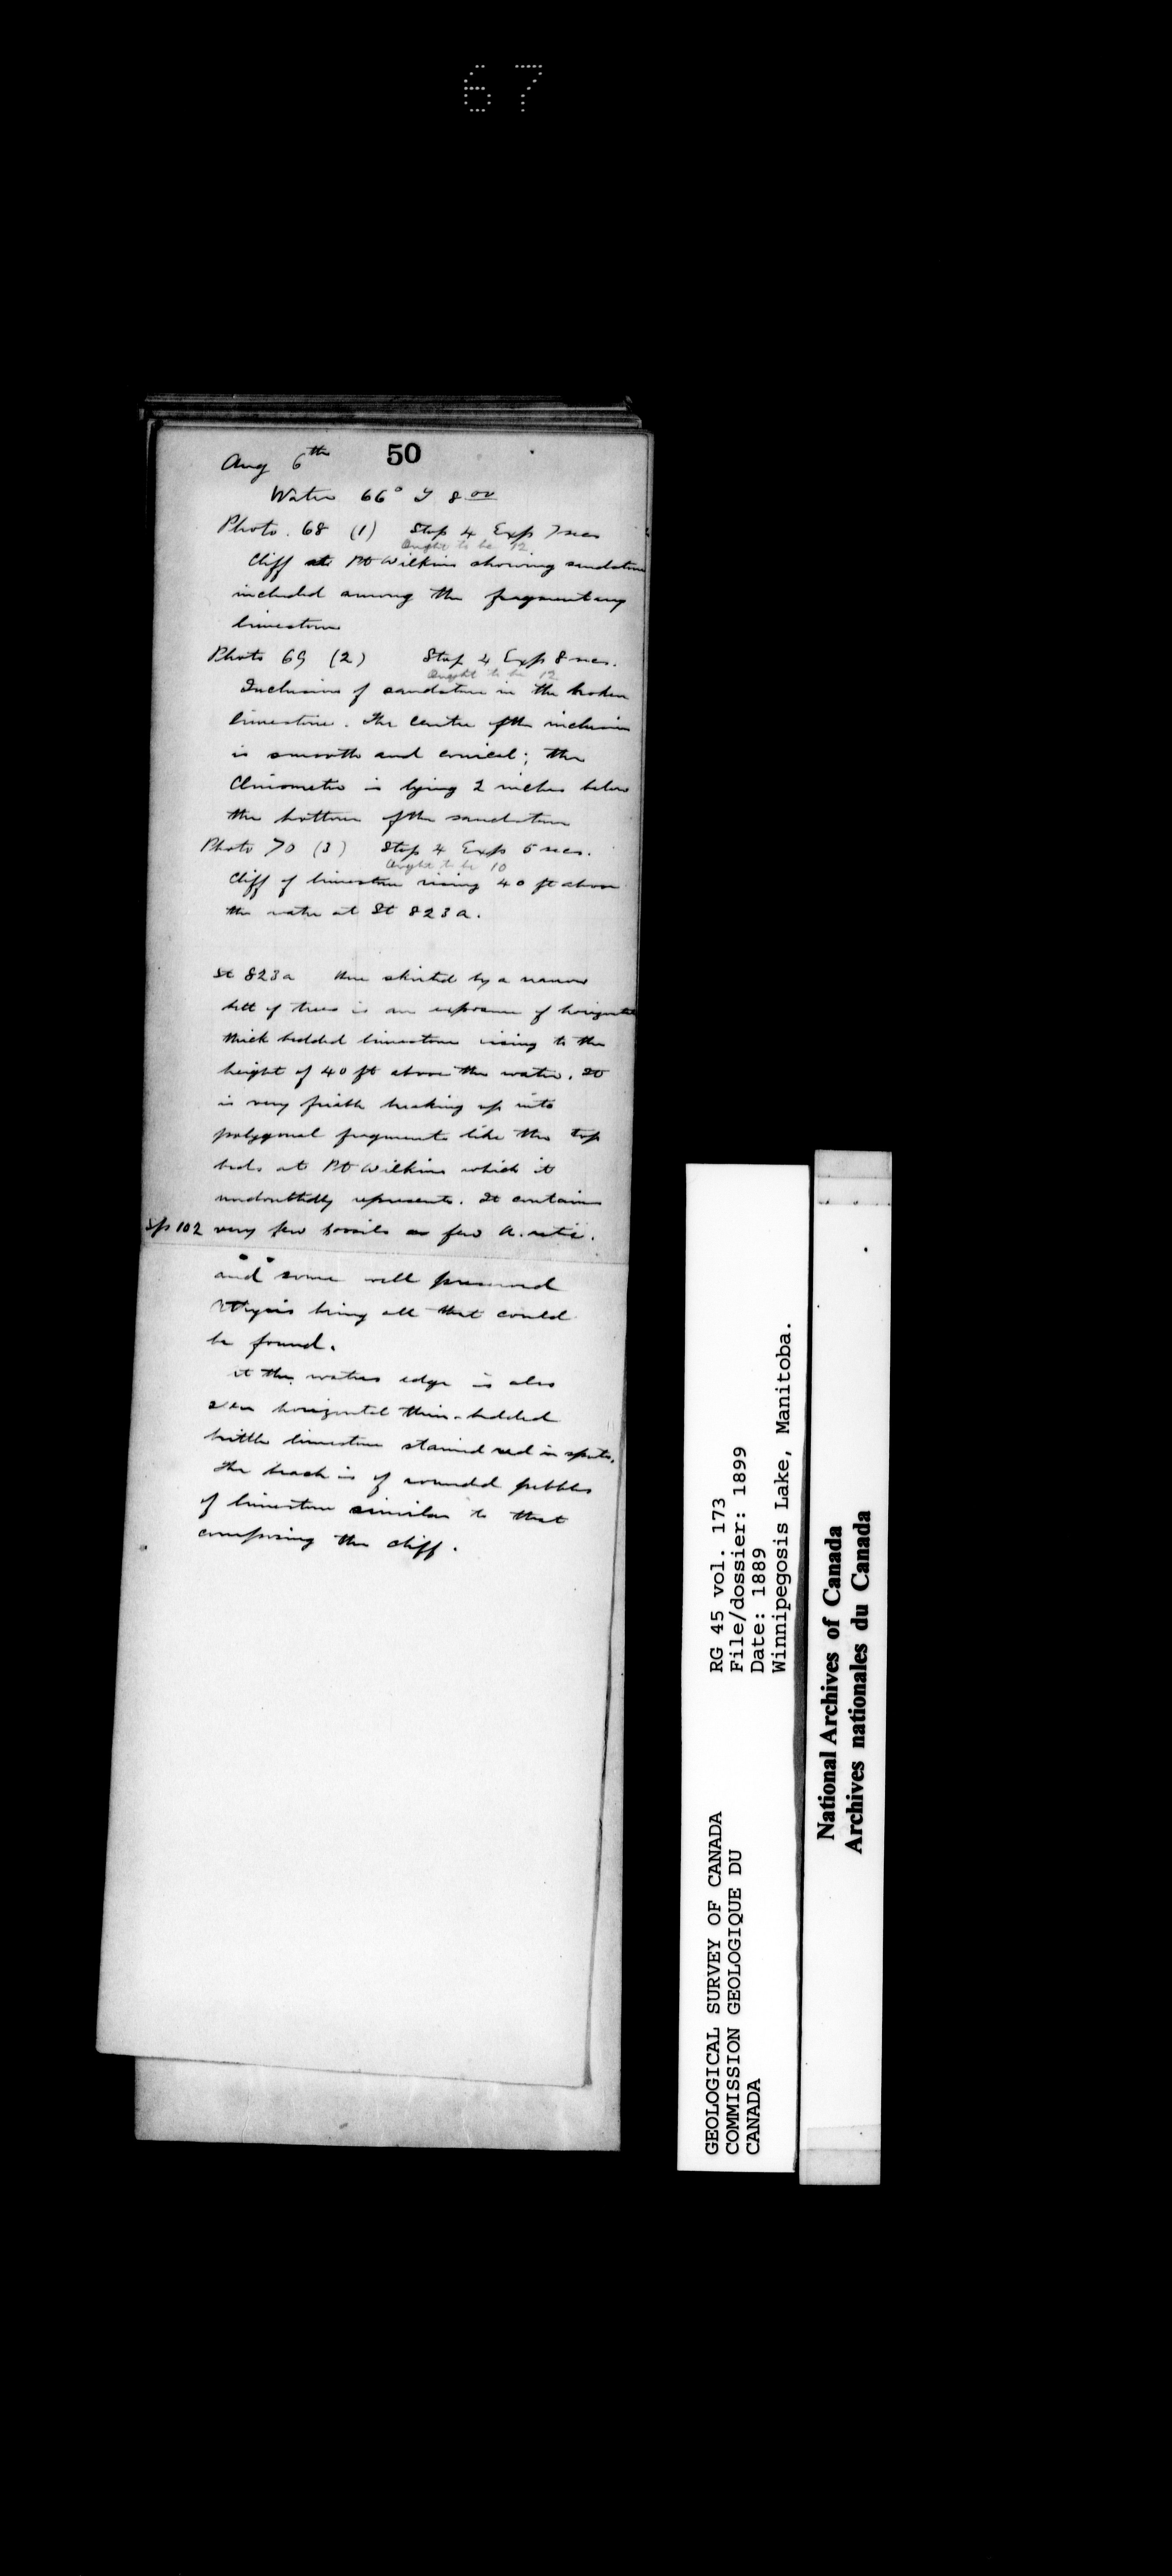 67
50
Aug 6th
Water 66° 8 00
Photo. 68 (1) Stop 4 Exp 7 secs
Ought to be 12
Cliff at Pt Wilkins showing sandstone
included among the fragmentary
limestone
Photo 69 (2) Stop 4 Exp 8 secs.
Ought to be 12
Inclusion of sandstone in the broken
limestone. The centre of the inclusion
is smooth and conical; the
Clinometer is lying 2 inches below
the bottom of the sandstone
Photo 70 (3) Stop 4 Exp 5 secs.
Ought to be 10
Cliff of limestone rising 40 ft above
the water at St 823a.
St 823a skirted by a narrow
belt of trees is an exposure of horizontal
thick bedded limestone rising to the
height of 40 ft above the water. It
is very friable breaking up into
polygonal fragments like the top
beds at Pt Wilkins which it
undoubtedly represents. It contains
Sp 102 very few fossils a few A. retic.
and some well preserved
Athyris being all that could
be found.
At the waters edge is also
seen horizontal thin-bedded
brittle limestone stained red in spots.
The beach is of rounded pebbles
of limestone similar to that
composing the cliff.
GEOLOGICAL SURVEY OF CANADA
COMMISSION GEOLOGIQUE DU
CANADA
RG 45 vol. 173
File/dossier: 1899
Date: 1889
Winnipegosis Lake, Manitoba.
National Archives of Canada
Archives nationales du Canada